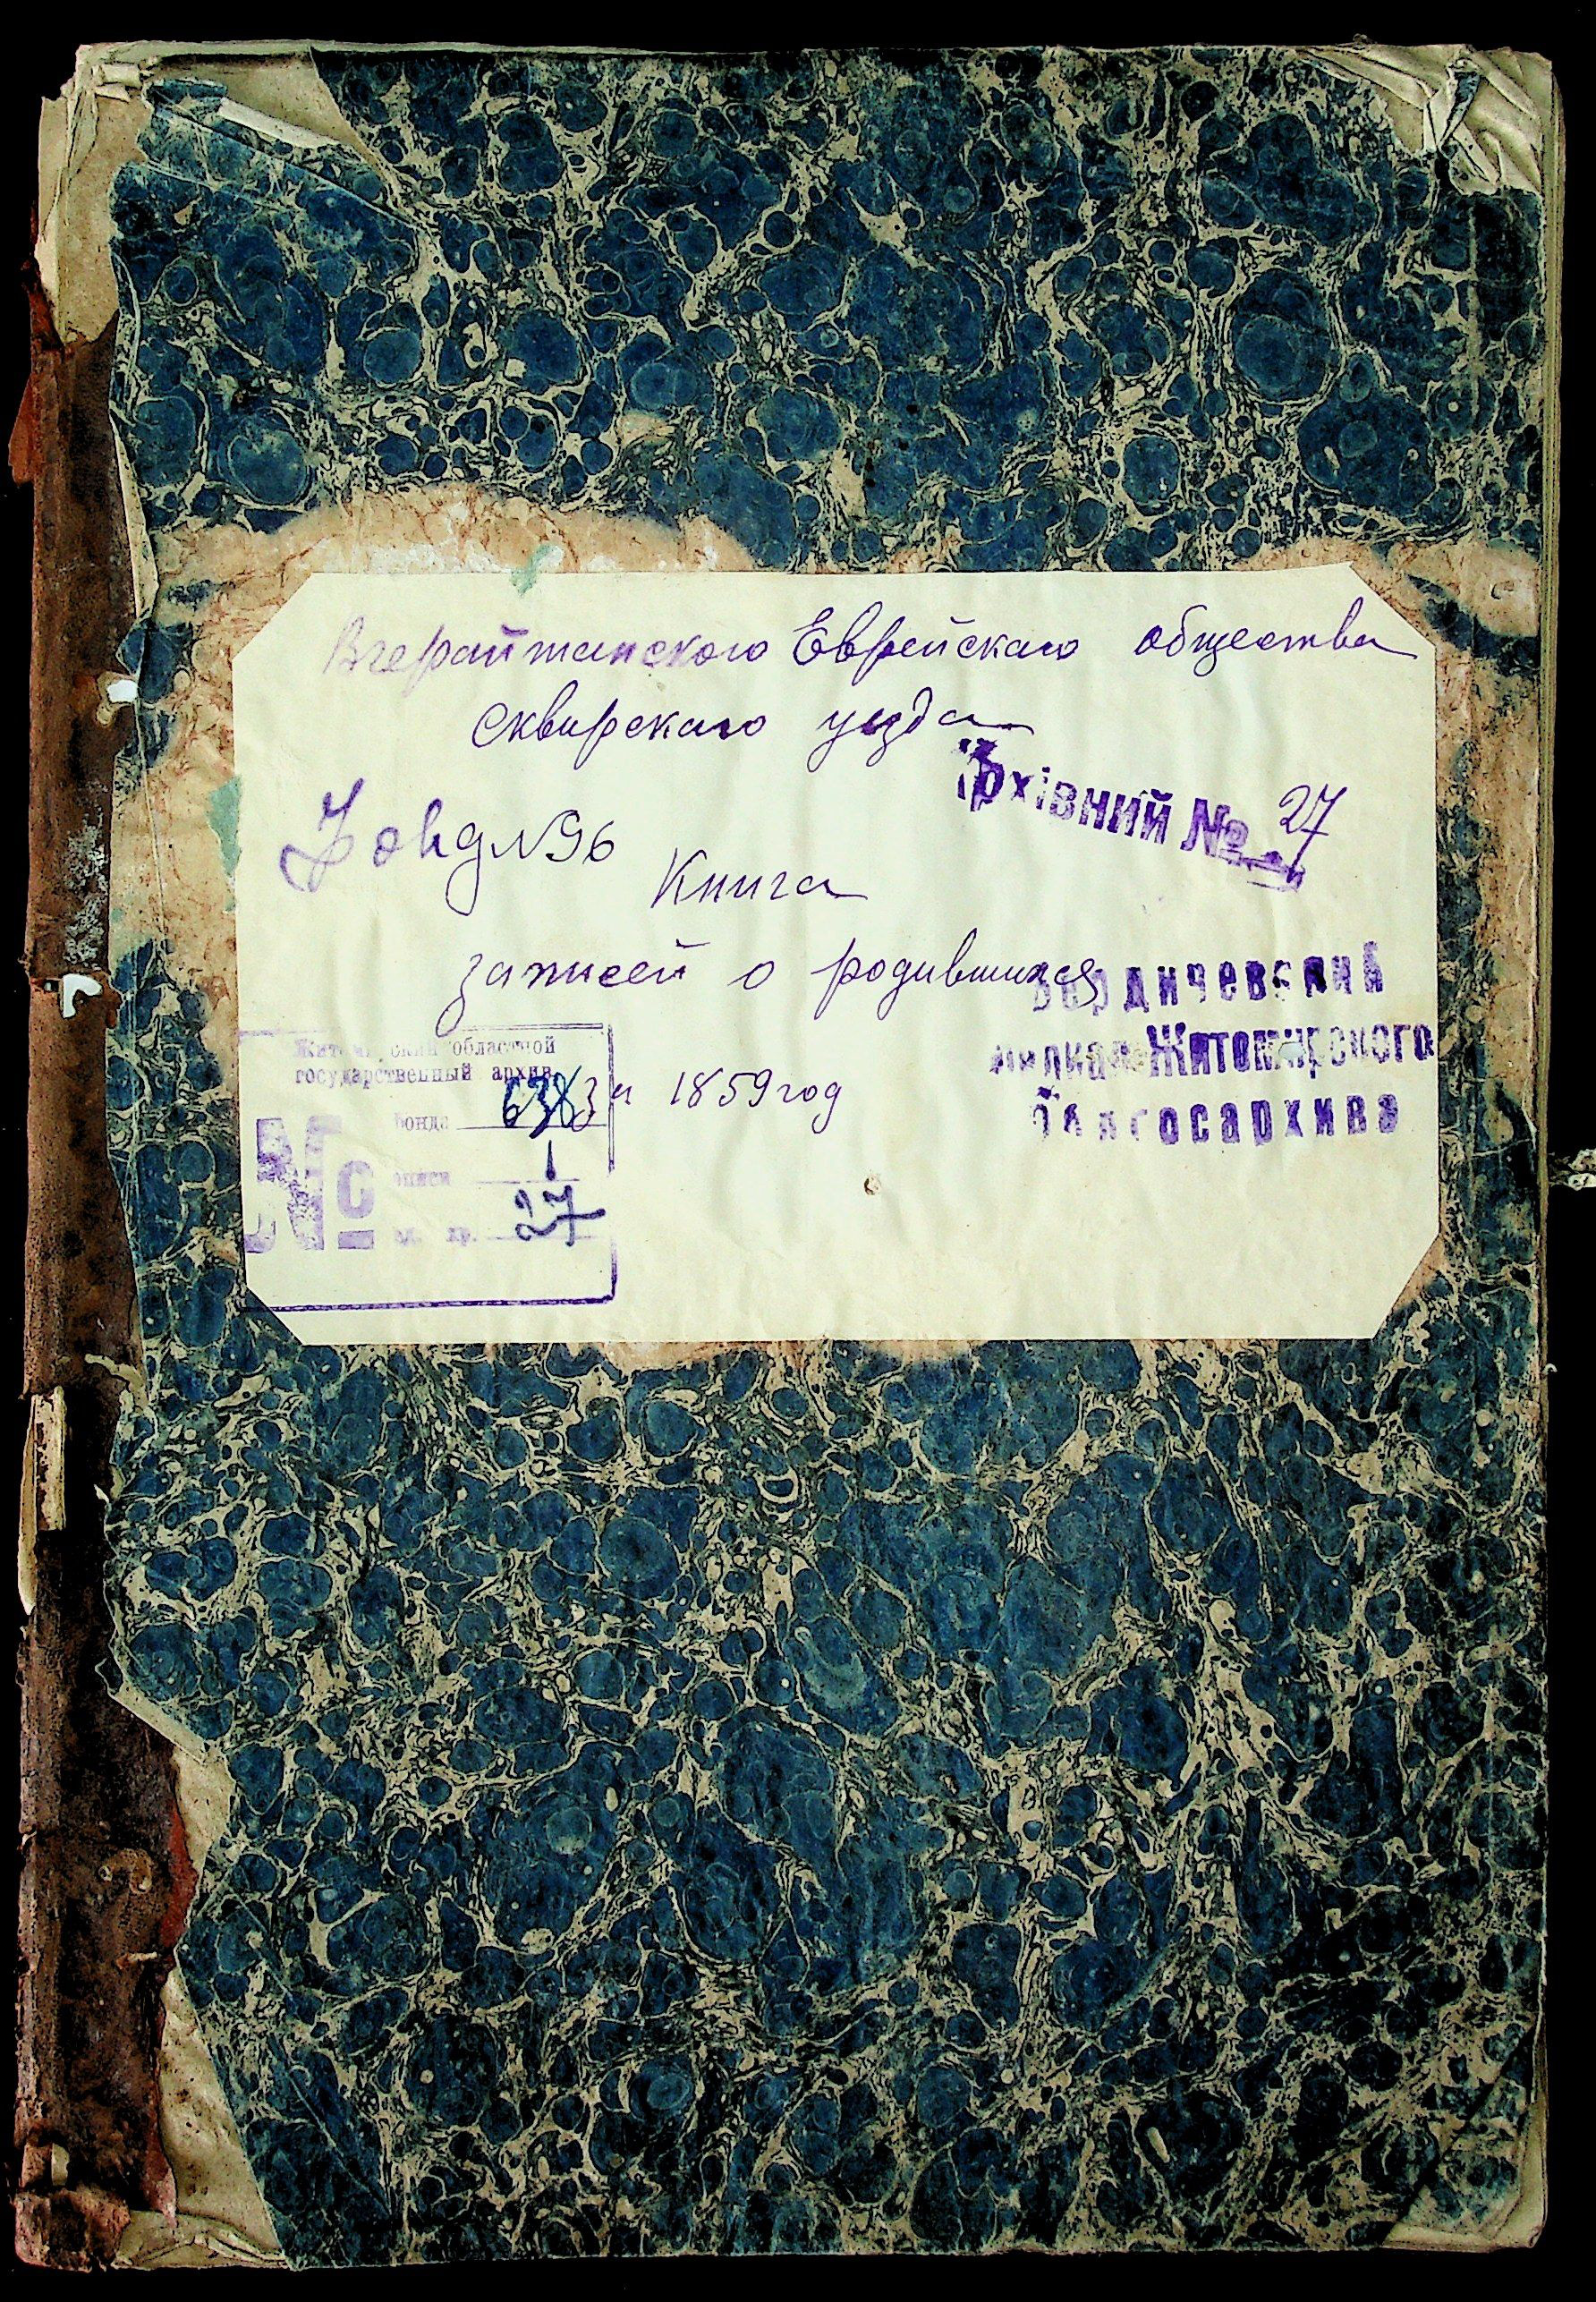 Вчерайшанского Еврейскаго общества
Сквирскаго уезда
Архівний № 27
Фонд №96
Книга
записей о родившихся
Бердичевский
филиал Житомирского
облгосархива
за 1859 год
Житомирский областной
государственный архив
№
фонда
описи 1
ед. хр. 27